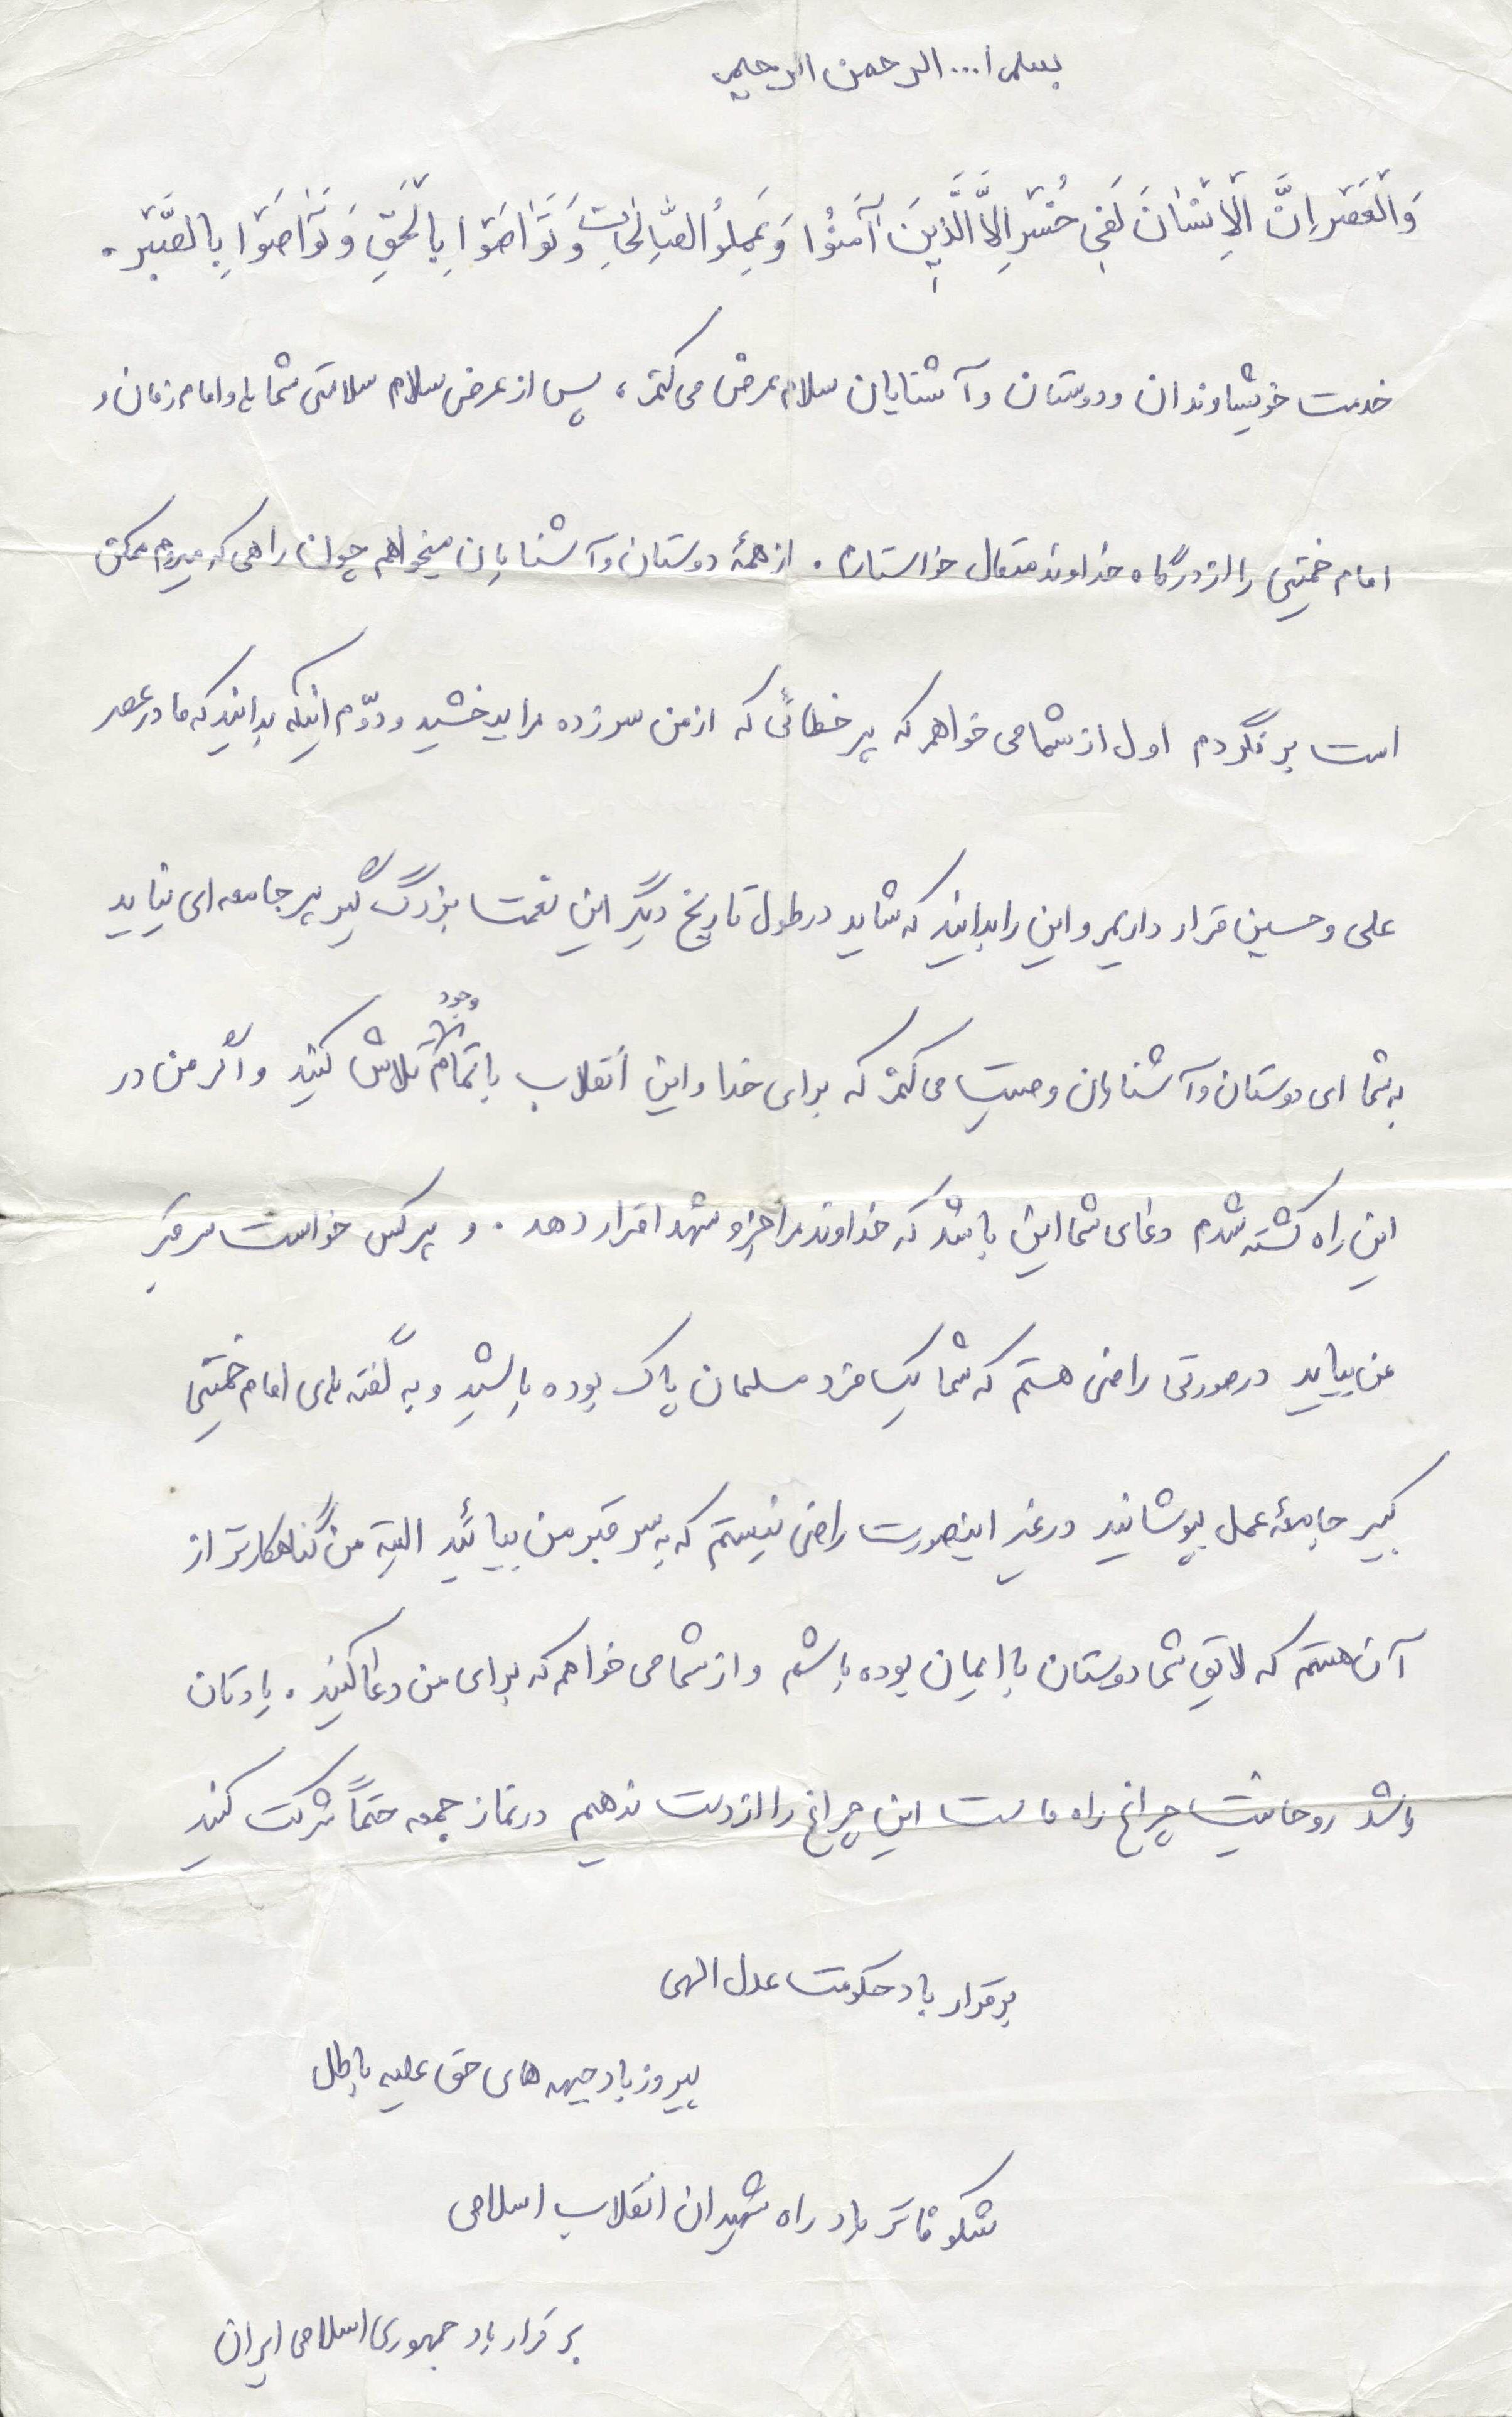 بسم ا... الرحمن الرحیم
وَالْعَصْرِ اِنَّ الْاِنْسٰانَ لَفی خُسْرٍ اِلاَّ الَّذینَ آمَنُوا وَ عَمِلُو الصّٰالِحٰاتِ وَ تَوٰاصَوْا بِالْحَقِّ وَ تَوٰاصَوْا بِالصَّبْرِ .
خدمت خویشاوندان و دوستان و آشنایان سلام عرض می کنم ، پس از عرض سلام سلامتی شماها و امام زمان و
امام خمینی را از درگاه خداوند متعال خواستارم . از همهٔ دوستان و آشنایان میخواهم چون راهی که میروم ممکن
است برنگردم اول از شما می خواهم که هر خطائی که از من سر زده مرا ببخشید و دوّم اینکه بدانید که ما در عصر
علی و حسین قرار داریم و این را بدانید که شاید در طول تاریخ دیگر این نعمت بزرگ گیر هر جامعه ای نیاید
به شما ای دوستان و آشنایان وصیت می کنم که برای خدا و این انقلاب با تمام وجود تلاش کنید و اگر من در
این راه کشته شدم دعای شما این باشد که خداوند مرا جزو شهدا قرار دهد . و هر کس خواست سر قبر
من بیاید در صورتی راضی هستم که شما یک فرد مسلمان پاک بوده باشید و به گفته های امام خمینی
کبیر جامهٔ عمل بپوشانید در غیر اینصورت راضی نیستم که به سر قبر من بیائید البته من گناهکارتر از
آن هستم که لایق شما دوستان با ایمان بوده باشم و از شما می خواهم که برای من دعا کنید . یادتان
باشد روحانیت چراغ راه ماست این چراغ را از دست ندهیم در نماز جمعه حتماً شرکت کنید
برقرار باد حکومت عدل الهی
پیروز باد جبهه های حق علیه باطل
شکوفاتر باد راه شهیدان انقلاب اسلامی
برقرار باد جمهوری اسلامی ایران